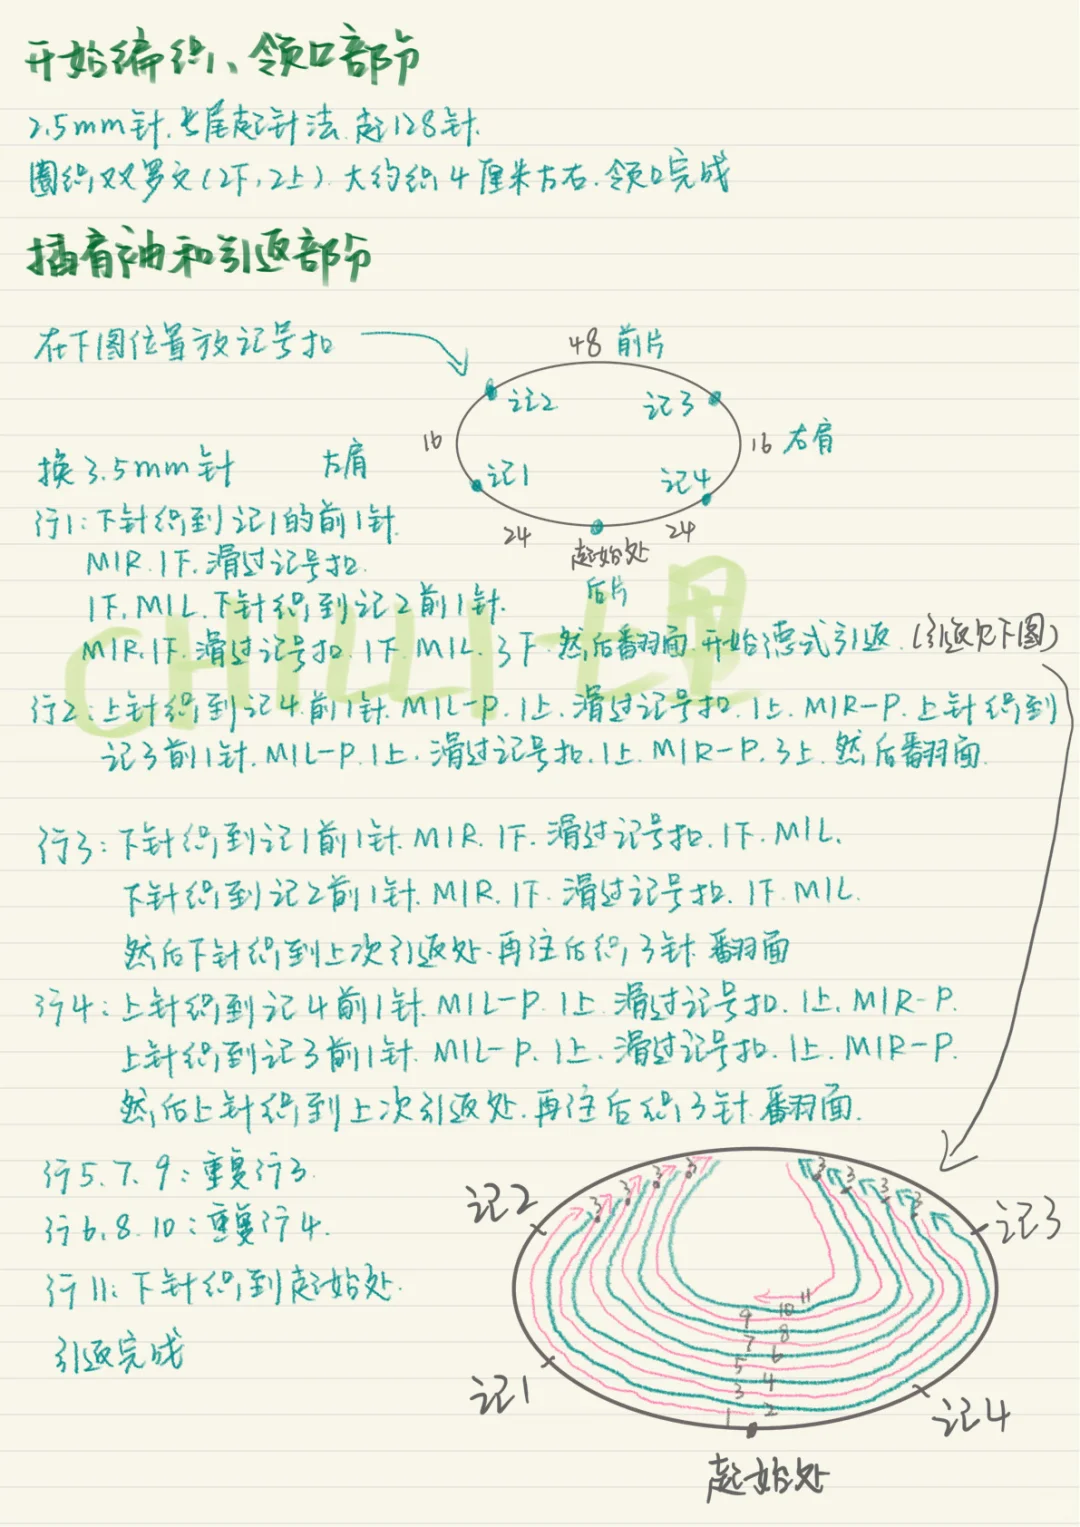 开始编织、领口部分
2.5mm针.长尾起针法.起128针.
圈织双罗文(2下,2上).大约织4厘米左右.领口完成
插肩袖和引返部分
在下图位置放记号扣
48 前片
记2
记3
16
16 右肩
换3.5mm针
左肩
记1
记4
行1:下针织到记1的前1针.
24
起始处
24
M1R.1下.滑过记号扣.
后片
1下.M1L.下针织到记2前1针.
M1R.1下.滑过记号扣.1下.M1L.3下.然后翻面.开始德式引返.(引返见下图)
CHILLI七田
行2:上针织到记4前1针.M1L-P.1上.滑过记号扣.1上.M1R-P.上针织到
记3前1针.M1L-P.1上.滑过记号扣.1上.M1R-P.3上.然后翻面.
行3:下针织到记1前1针.M1R.1下.滑过记号扣.1下.M1L.
下针织到记2前1针.M1R.1下.滑过记号扣.1下.M1L.
然后下针织到上次引返处.再往后织3针.翻面
行4:上针织到记4前1针.M1L-P.1上.滑过记号扣.1上.M1R-P.
上针织到记3前1针.M1L-P.1上.滑过记号扣.1上.M1R-P.
然后上针织到上次引返处.再往后织3针.翻面.
行5.7.9:重复行3.
行6.8.10:重复行4.
行11:下针织到起始处.
引返完成
3 3 3 3
3 3 3 3
记2
记3
11
9 10
7 8
5 6
3 4
1 2
记1
记4
起始处